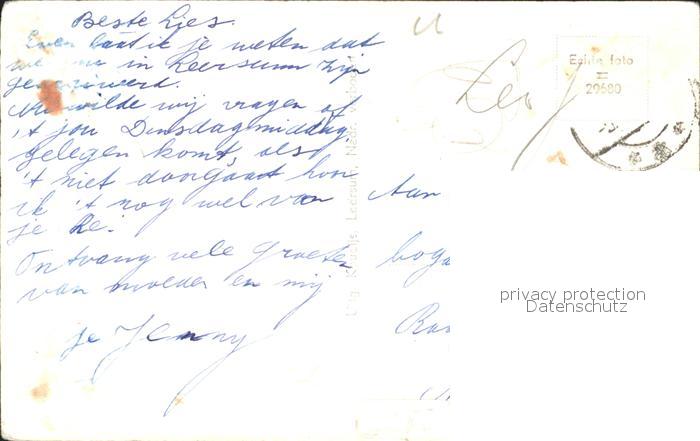 Beste Lies.
Even laat ik je weten dat
we in Leersum zijn
gearriveerd.
Nu wilde wij vragen of
't jou Dinsdagmiddag
gelegen komt, als
't niet doorgaat hoor
ik 't nog wel van
je
Ontvang vele groeten
van moeder en mij
je Jenny
Aan
Uitg. Leersum
Echte foto
29580
privacy protection
Datenschutz